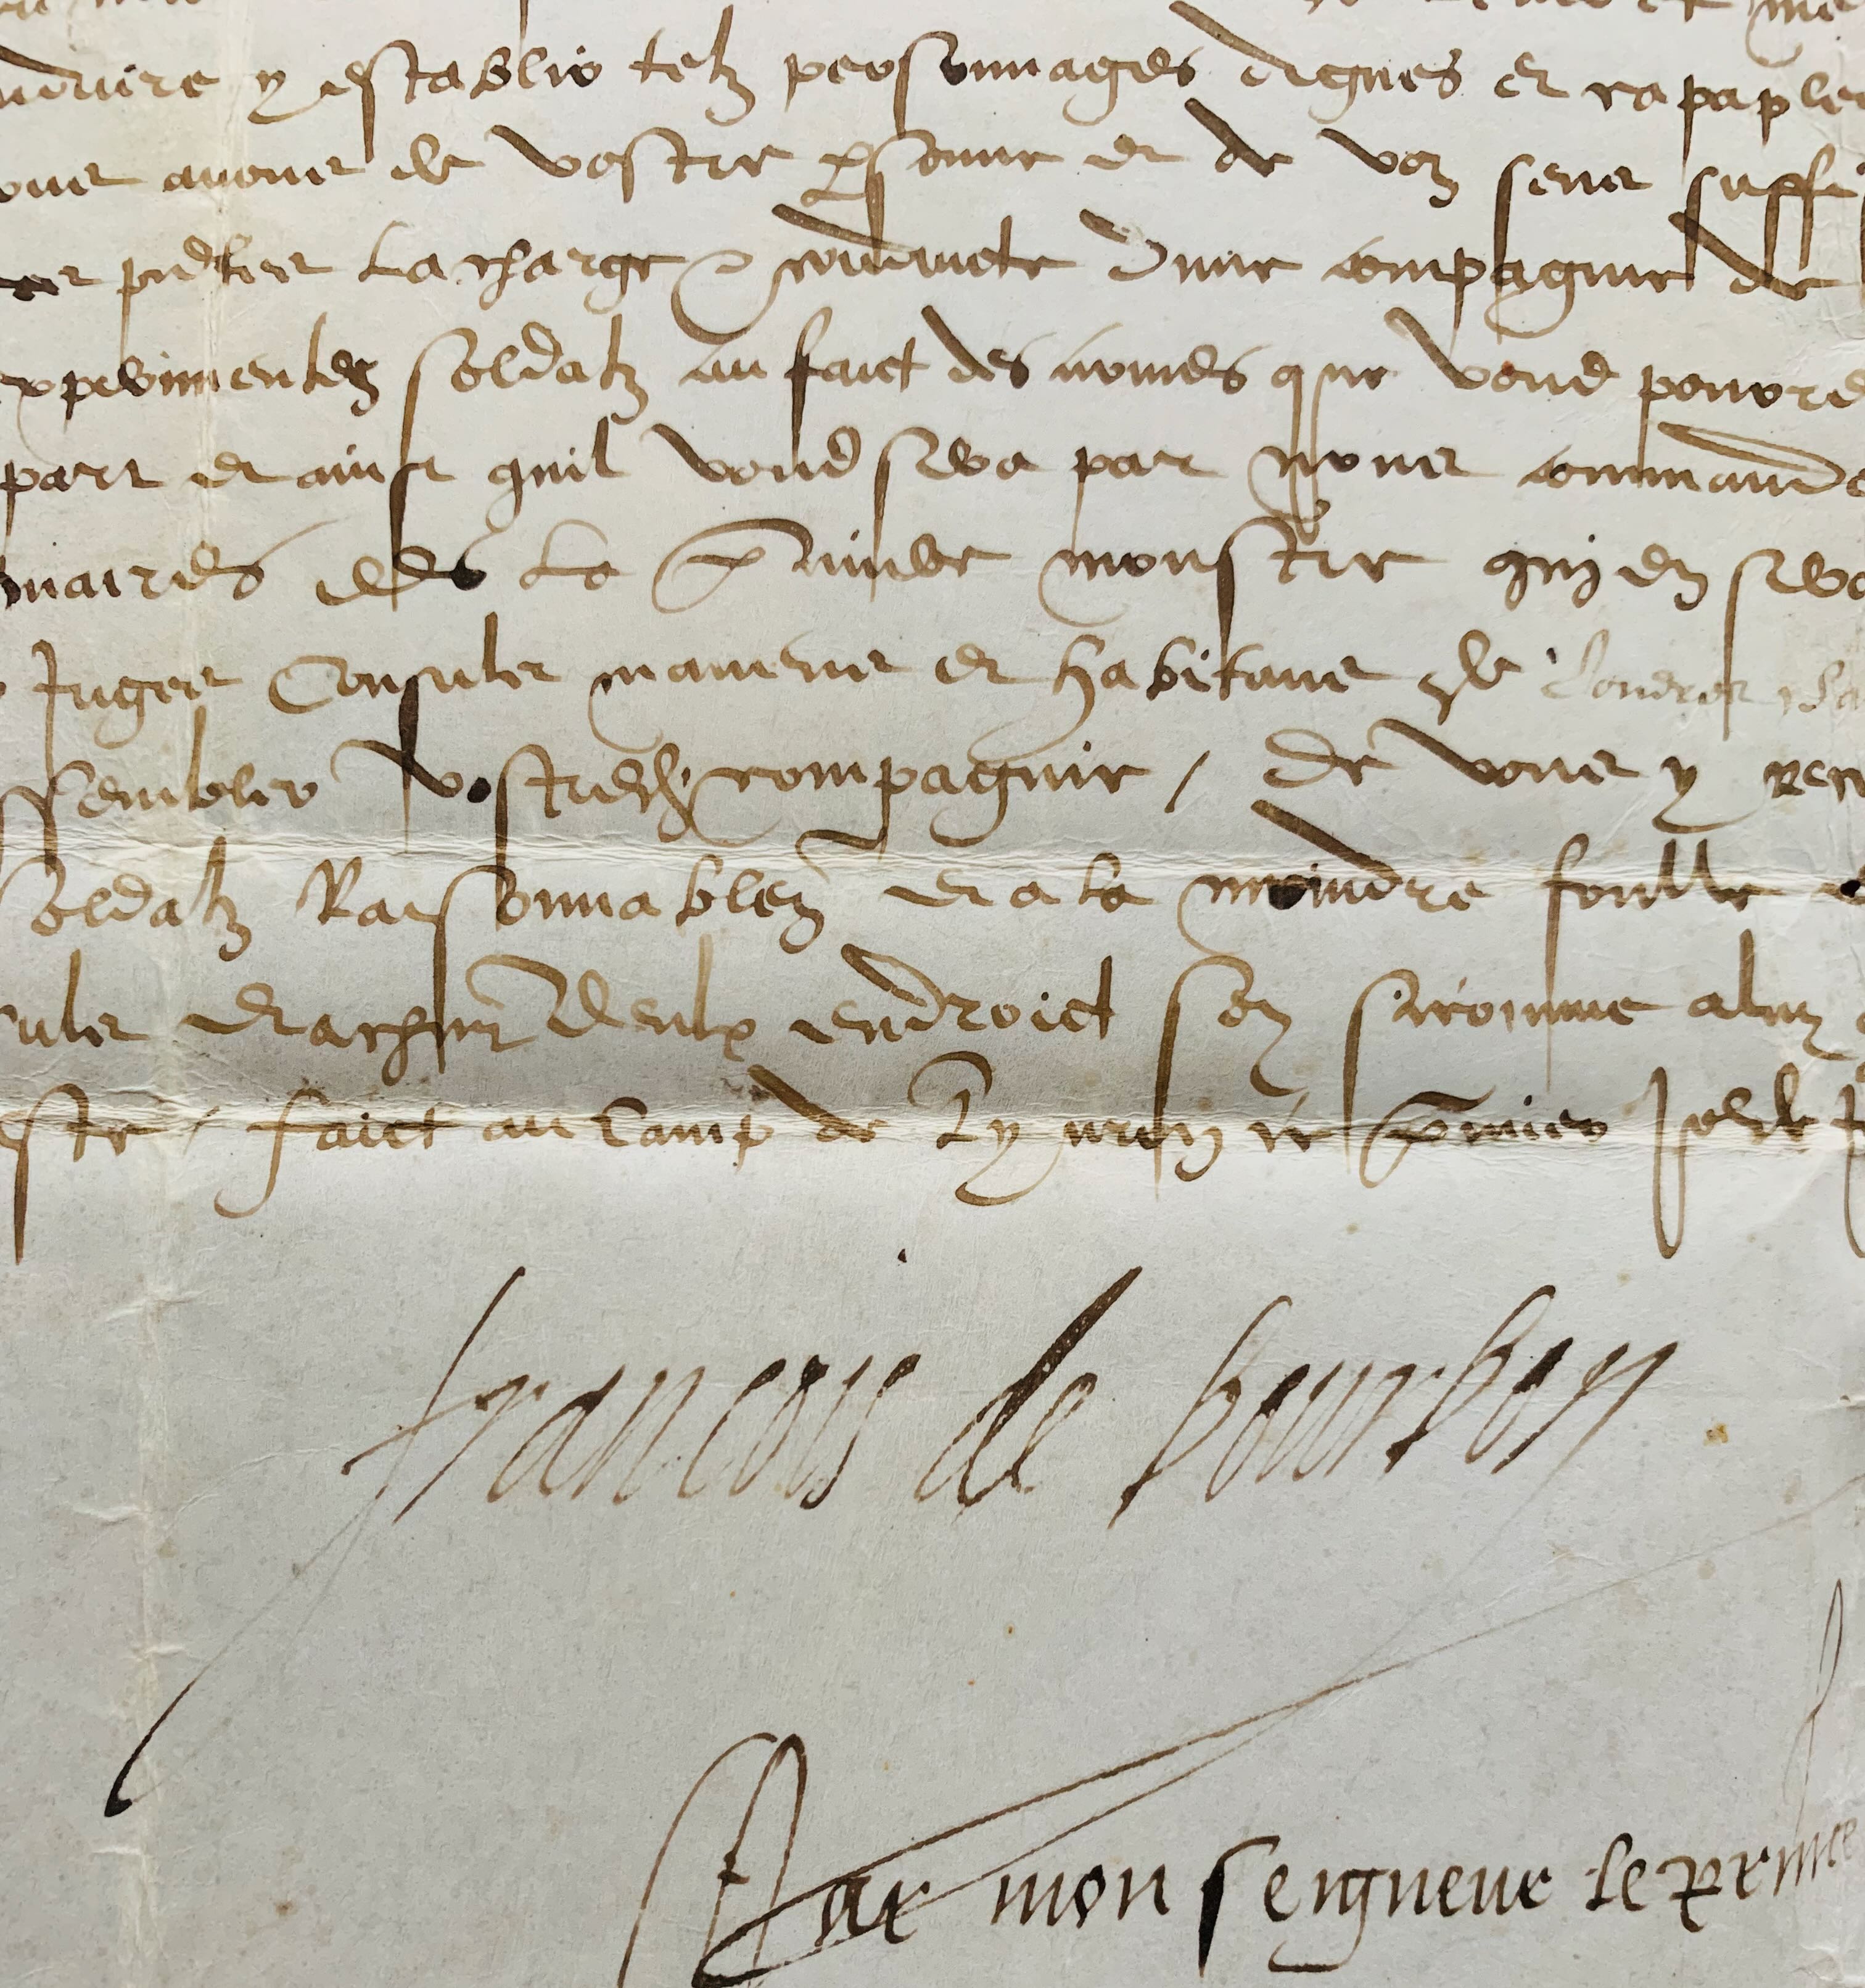 y establir telz personnages dignes et capables
avons de vostre psonne et de voz sens suff
la charge & conducte dune compagnie de
experimentez soldatz au faict des armes que vous pourrez
part et ainsi quil vous sera par nous commande
naires des la pmiere monstre quj en sera
Juges Consulz manans et habitans de
ssembler vostred compagnie / De vous y rece
Soldatz Raisonnablem et a la moindre foulle
et a chun deulx endroict soy si comme a luy
faict au Camp de le pmier Jor de
francois de bourbon
Par monseigneur le prince